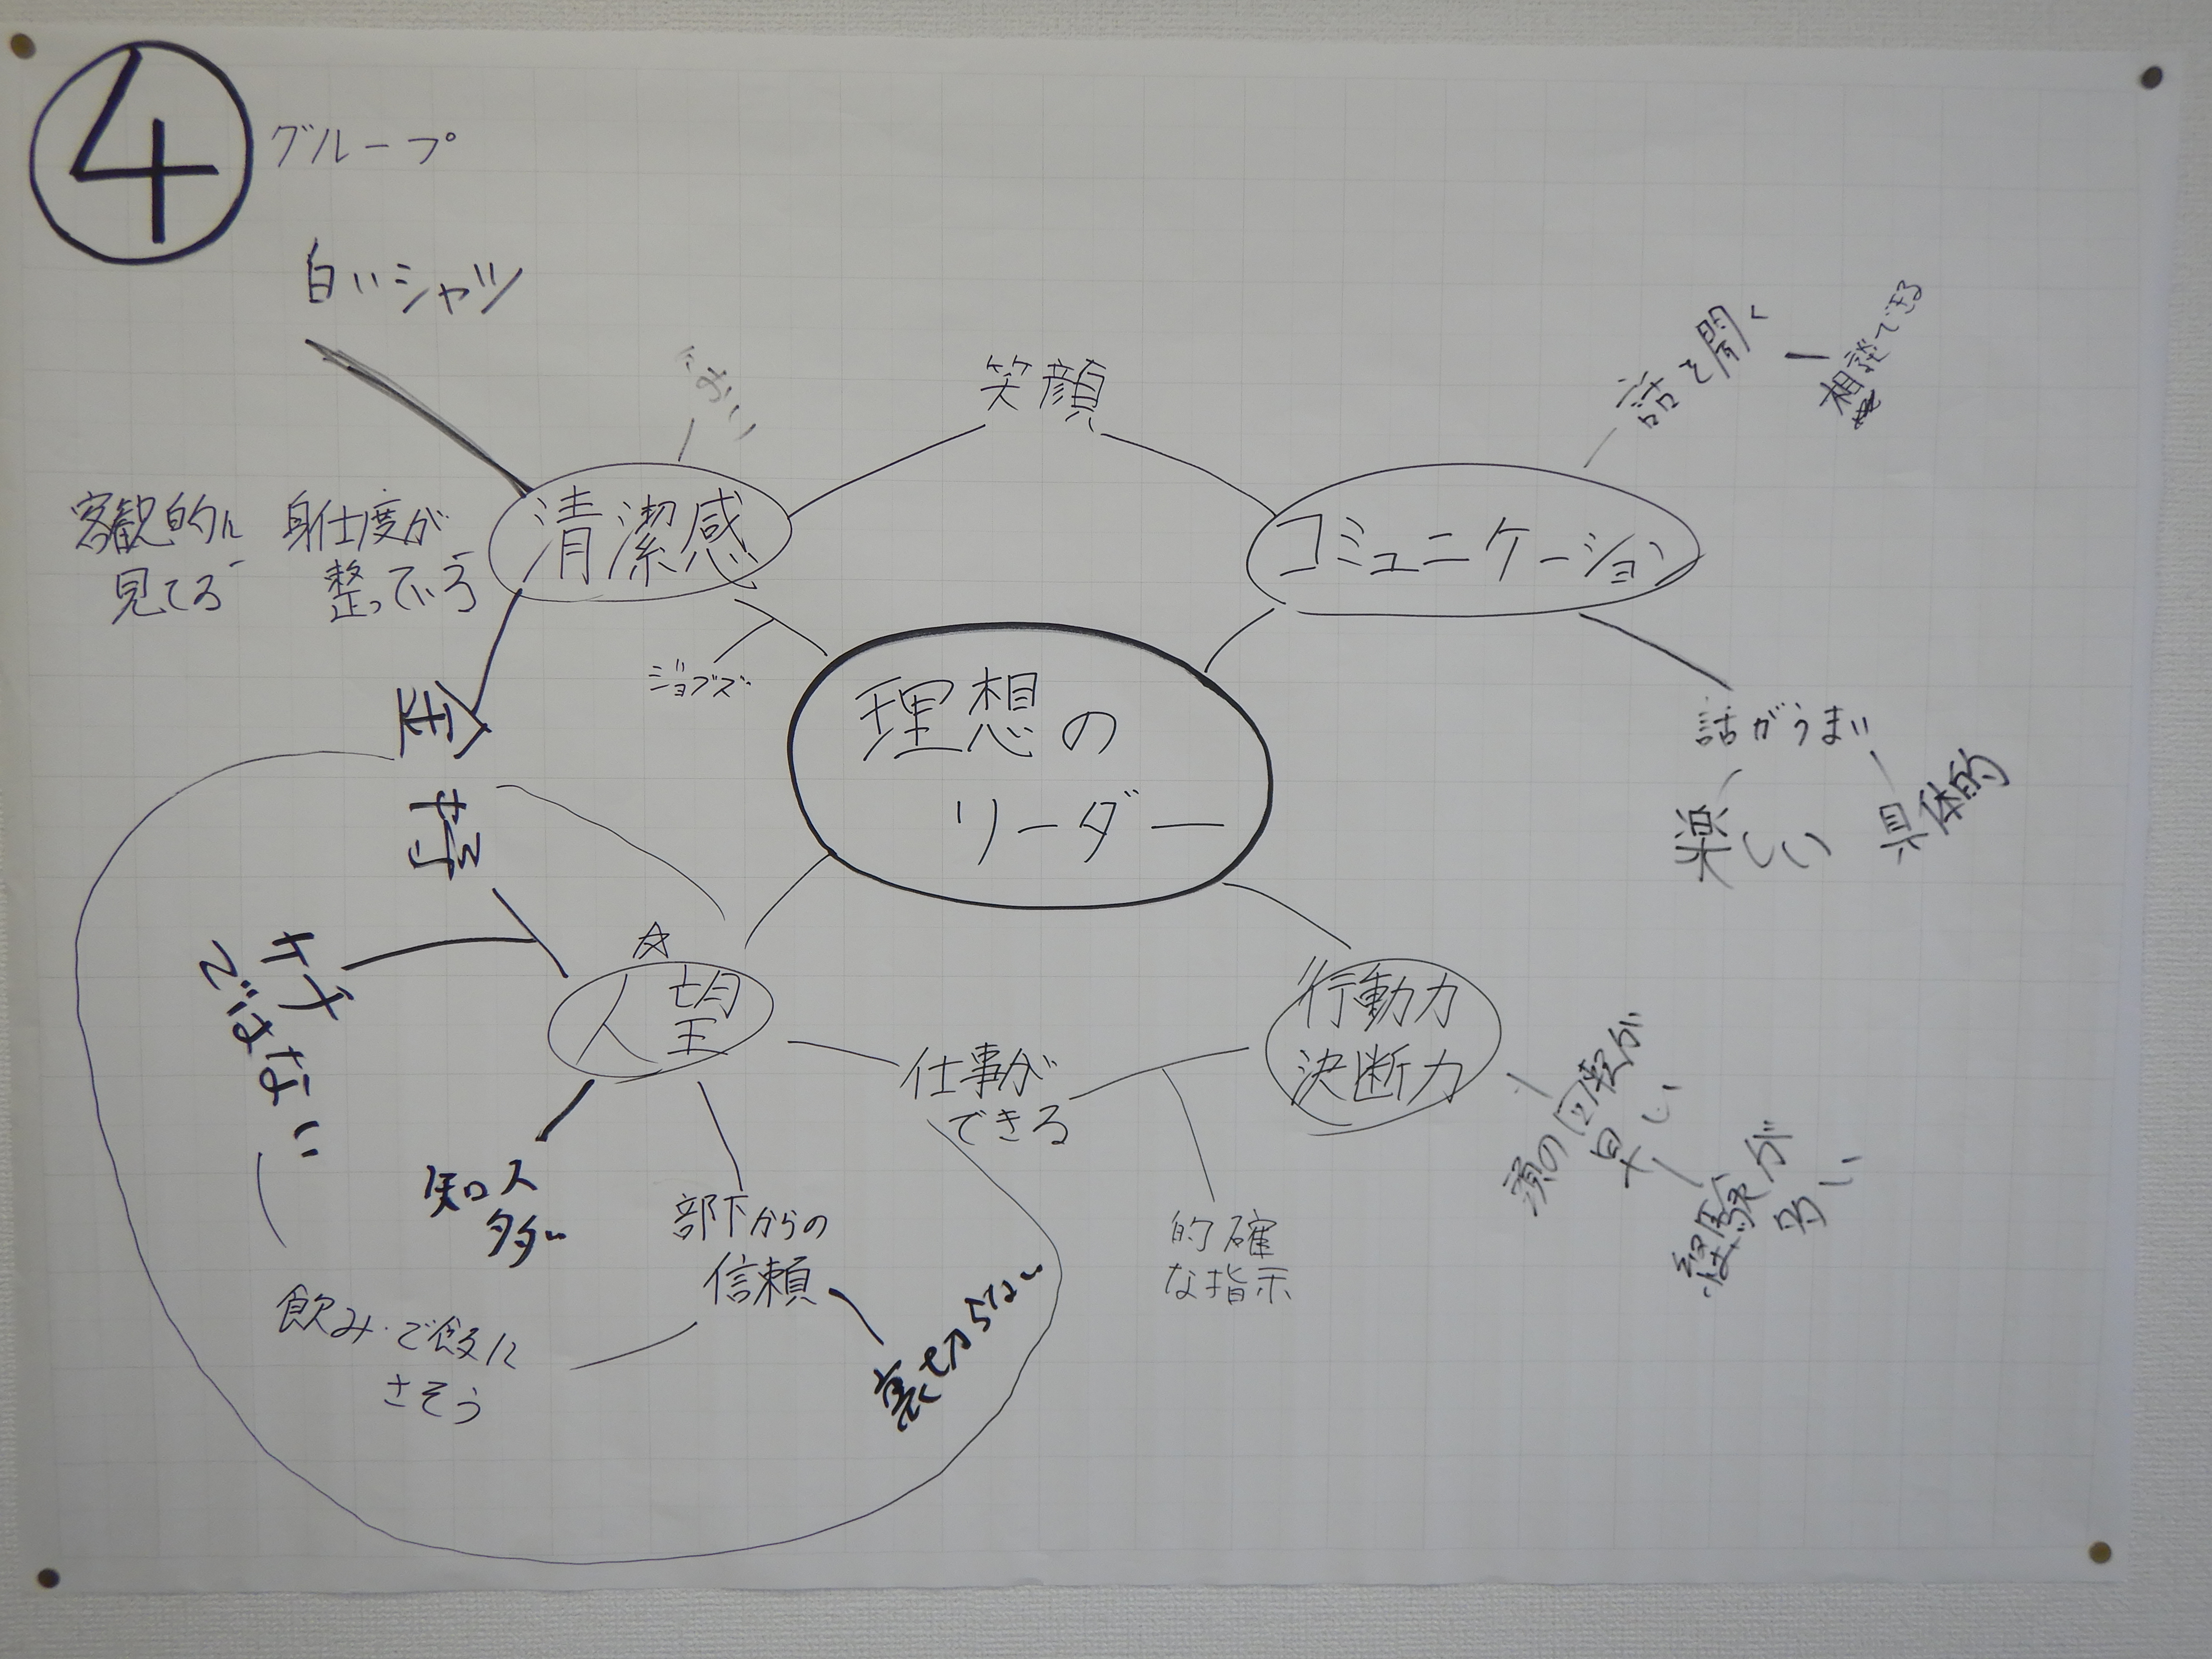 4
グループ
白いシャツ
におい
笑顔
話を聞く
相談できる
清潔感
コミュニケーション
客観的に
見てる
身仕度が
整っている
ジョブズ
理想の
リーダー
話がうまい
楽しい
具体的
ケチ
ではない
☆
人望
行動力
決断力
仕事が
できる
頭の回転が
早い
経験が
多い
知人
多い
部下からの
信頼
裏切らない
的確
な指示
飲み・ご飯に
さそう